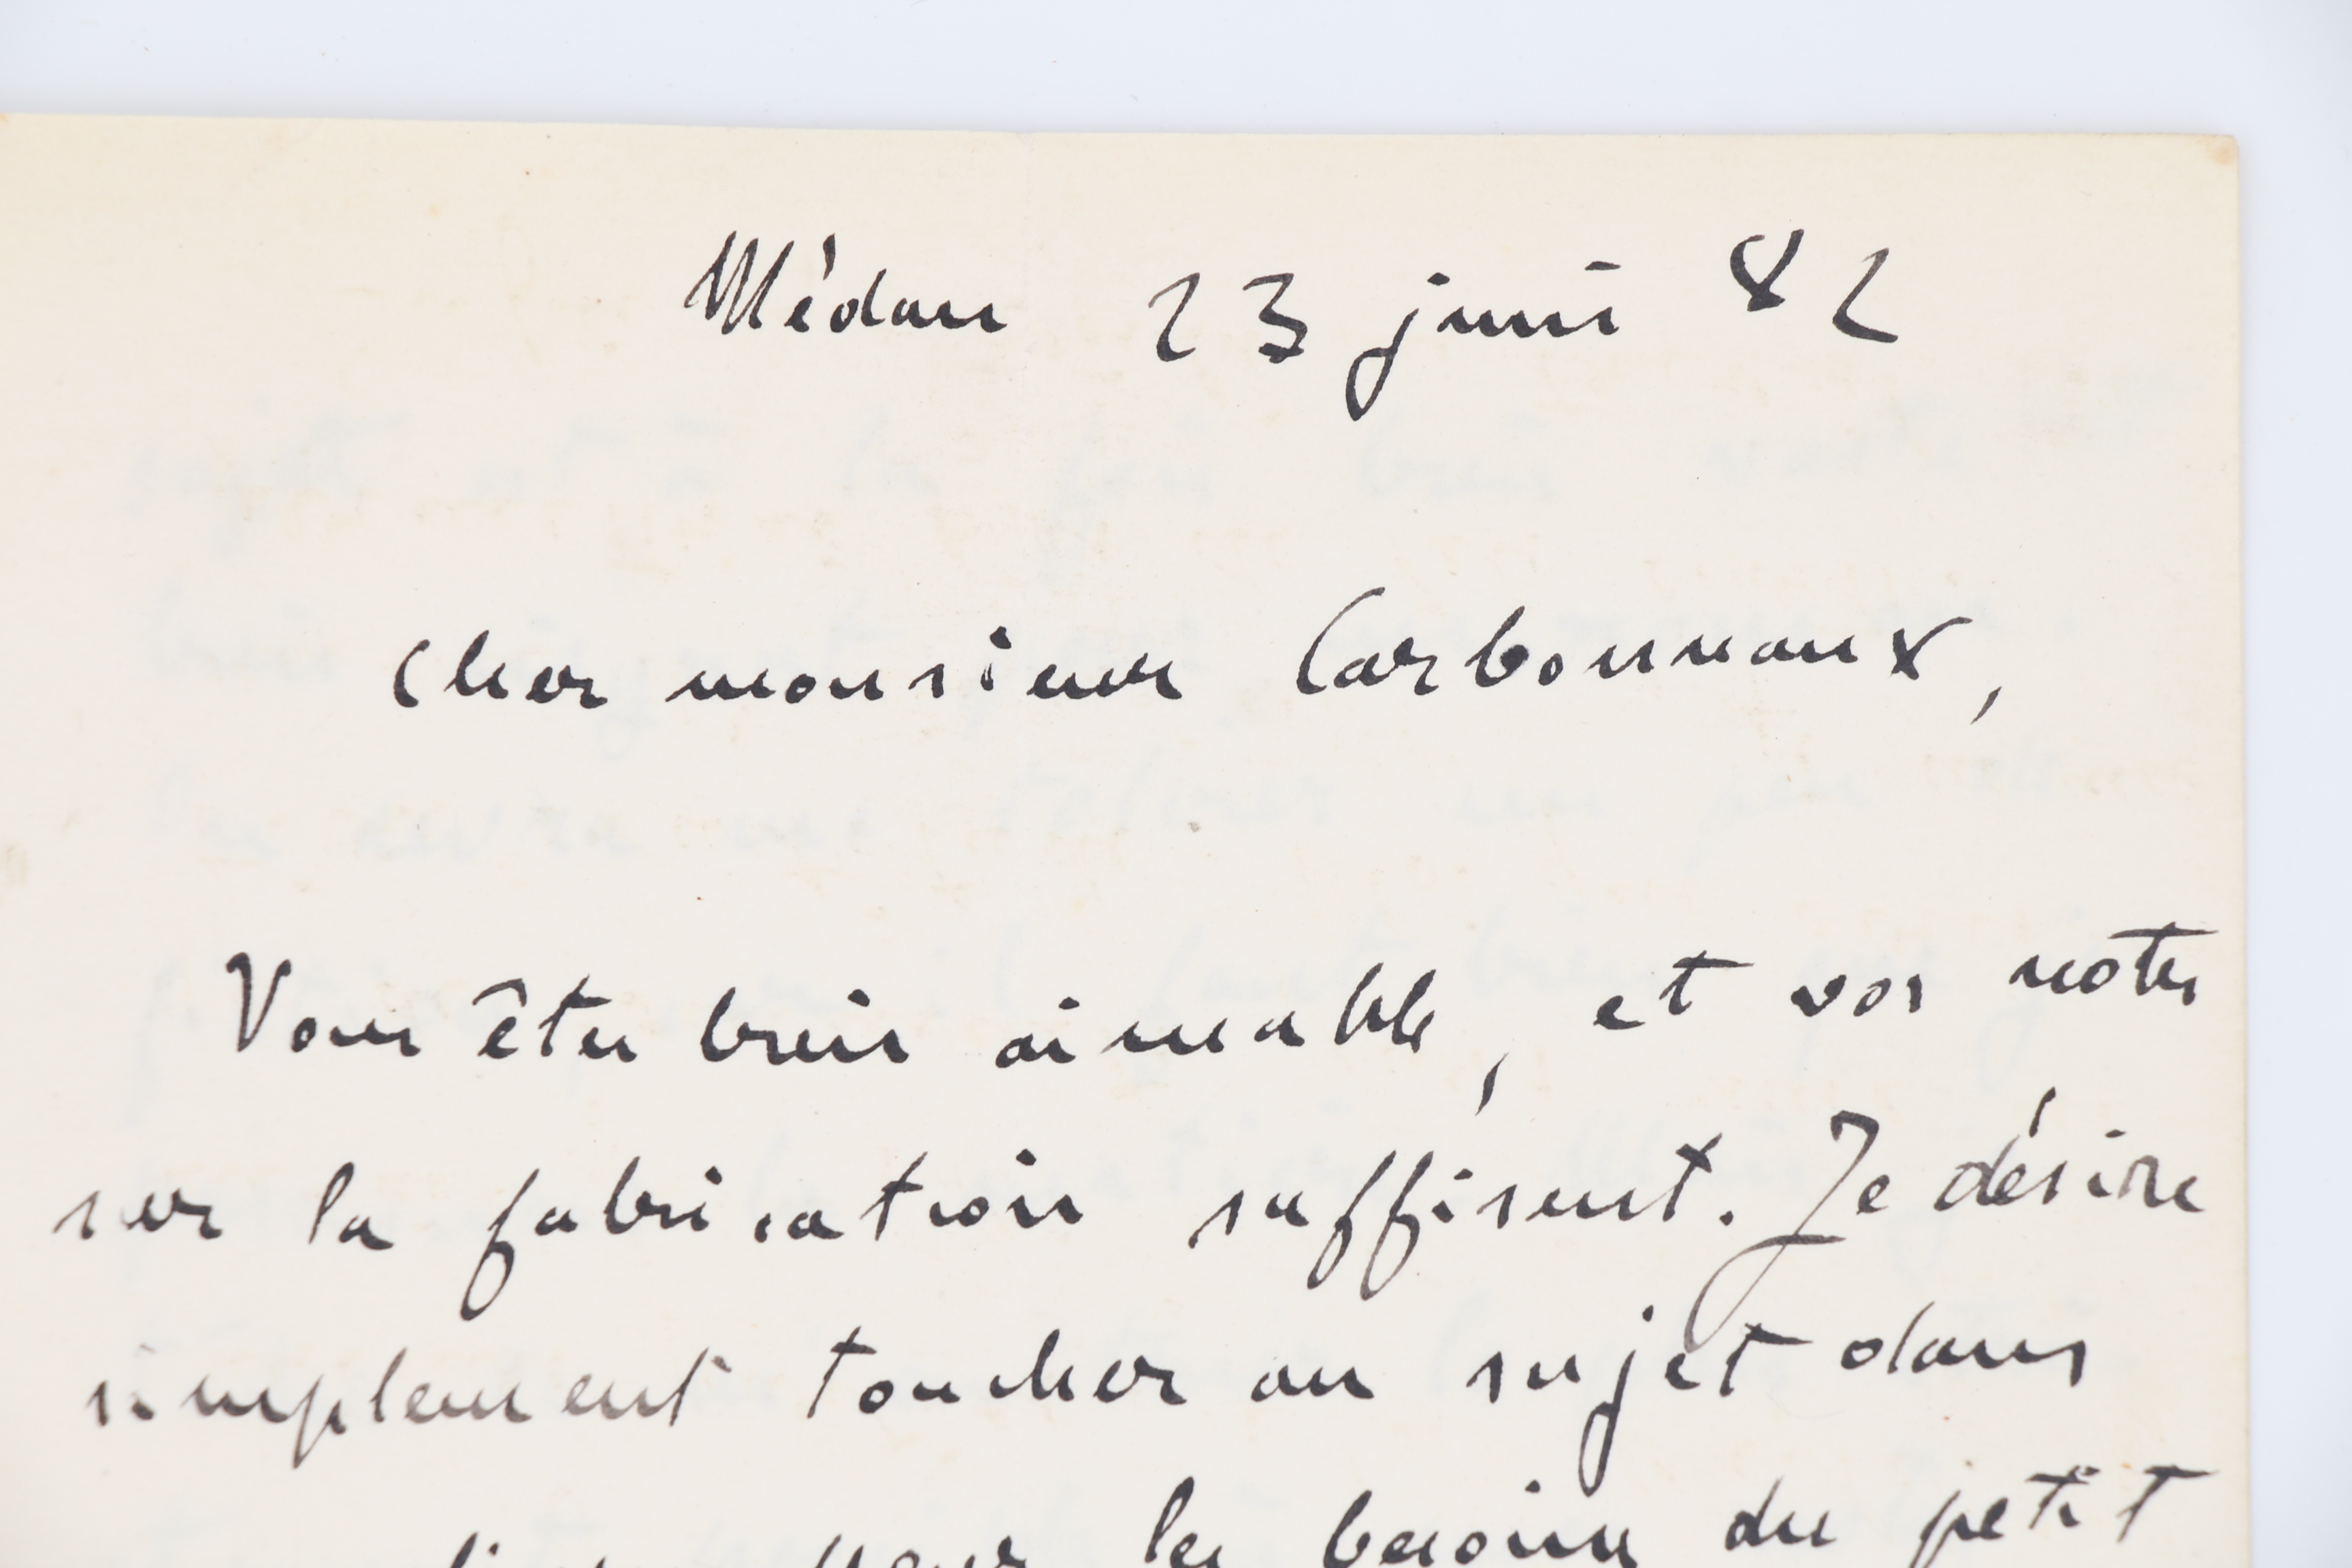 Médan 23 juin 82
Cher monsieur Carbonnaux,
Vous êtes bien aimable, et vos notes
sur la fabrication suffisent. Je désire
simplement toucher au sujet dans
pour les besoins du petit